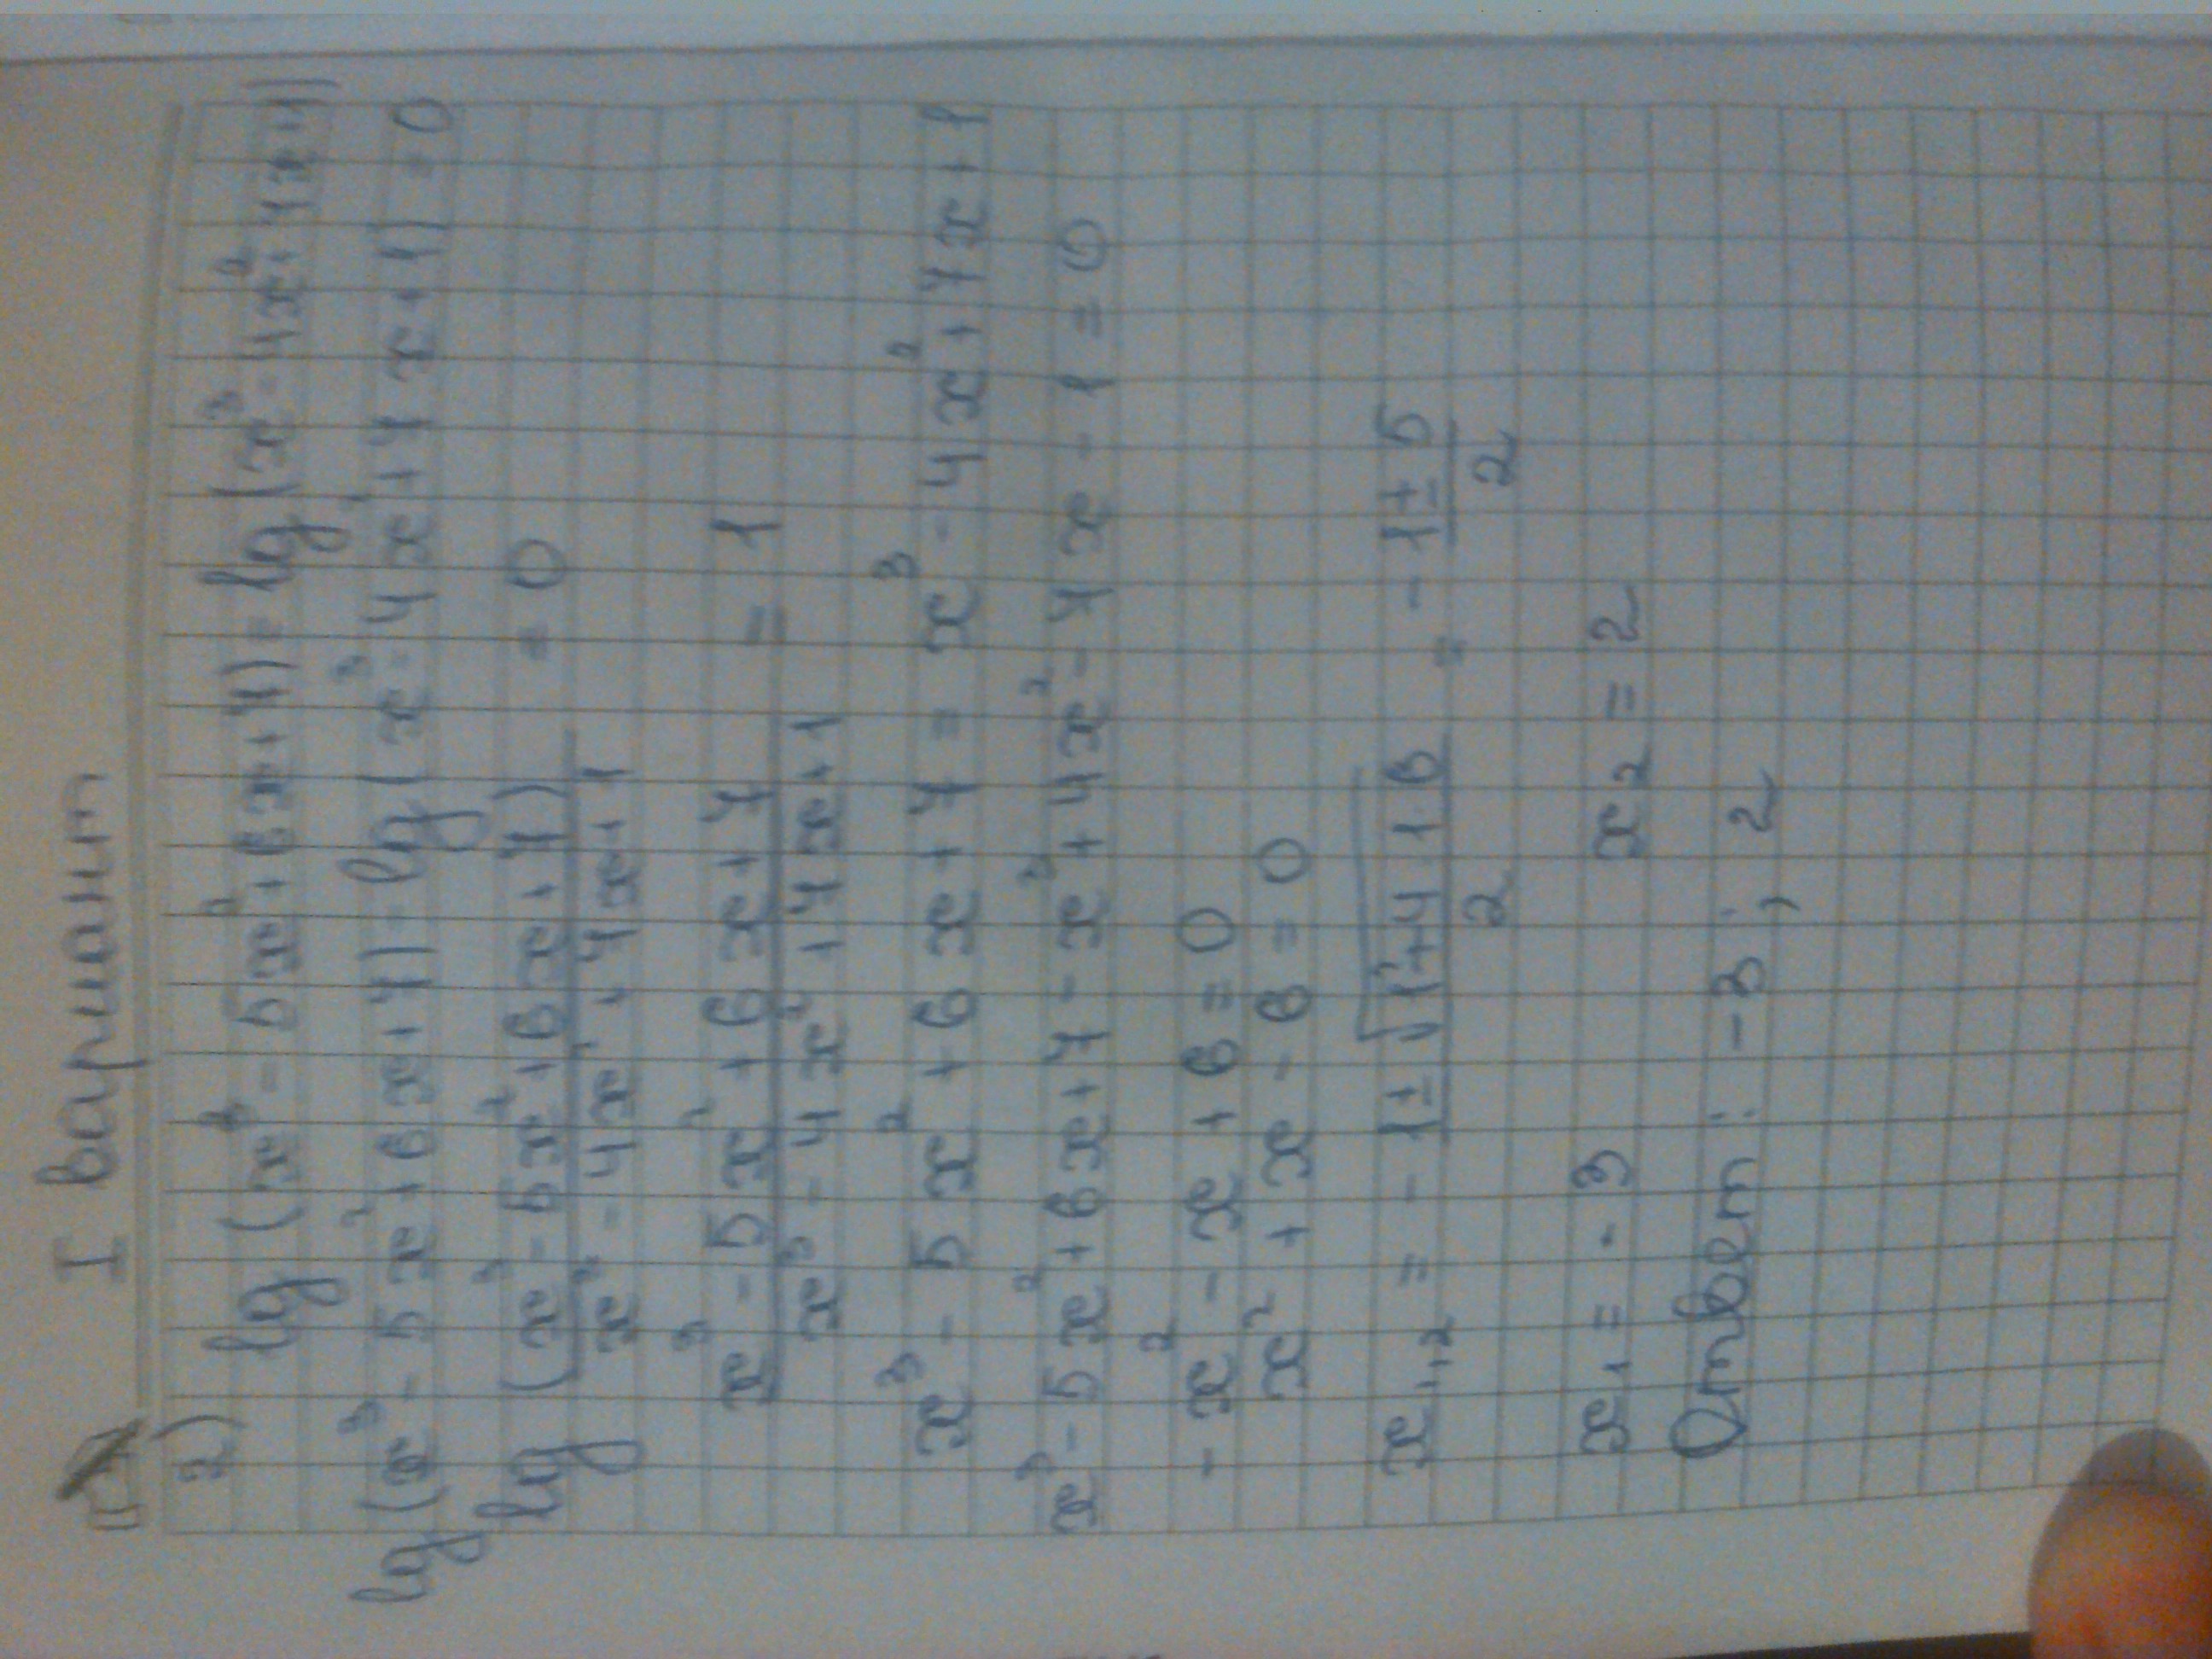 I вариант
2) lg (x³ - 5x² + 6x + 7) = lg (x³ - 4x² + 7x + 1)
lg (x³ - 5x² + 6x + 7) - lg (x³ - 4x² + 7x + 1) = 0
lg (x³ - 5x² + 6x + 7) / x³ - 4x² + 7x + 1 = 0
x³ - 5x² + 6x + 7 / x³ - 4x² + 7x + 1 = 1
x³ - 5x² + 6x + 7 = x³ - 4x² + 7x + 1
x³ - 5x² + 6x + 7 - x³ + 4x² - 7x - 1 = 0
- x² - x + 6 = 0
x² + x - 6 = 0
x₁,₂ = - 1 ± √1² + 4·1·6 / 2 = - 1 ± 5 / 2
x₁ = - 3 x₂ = 2
Ответ: -3; 2